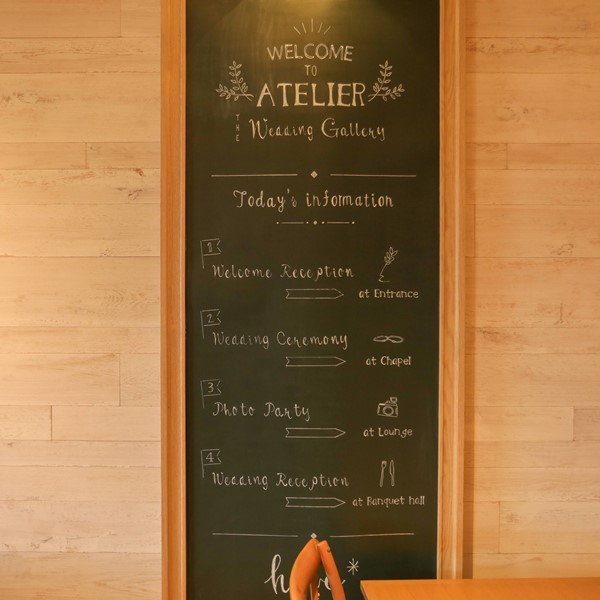 WELCOME
TO
ATELIER
THE Wedding Gallery
Today's information
1
Welcome Reception
at Entrance
2
Wedding Ceremony
at Chapel
3
Photo Party
at Lounge
4
Wedding Reception
at Banquet hall